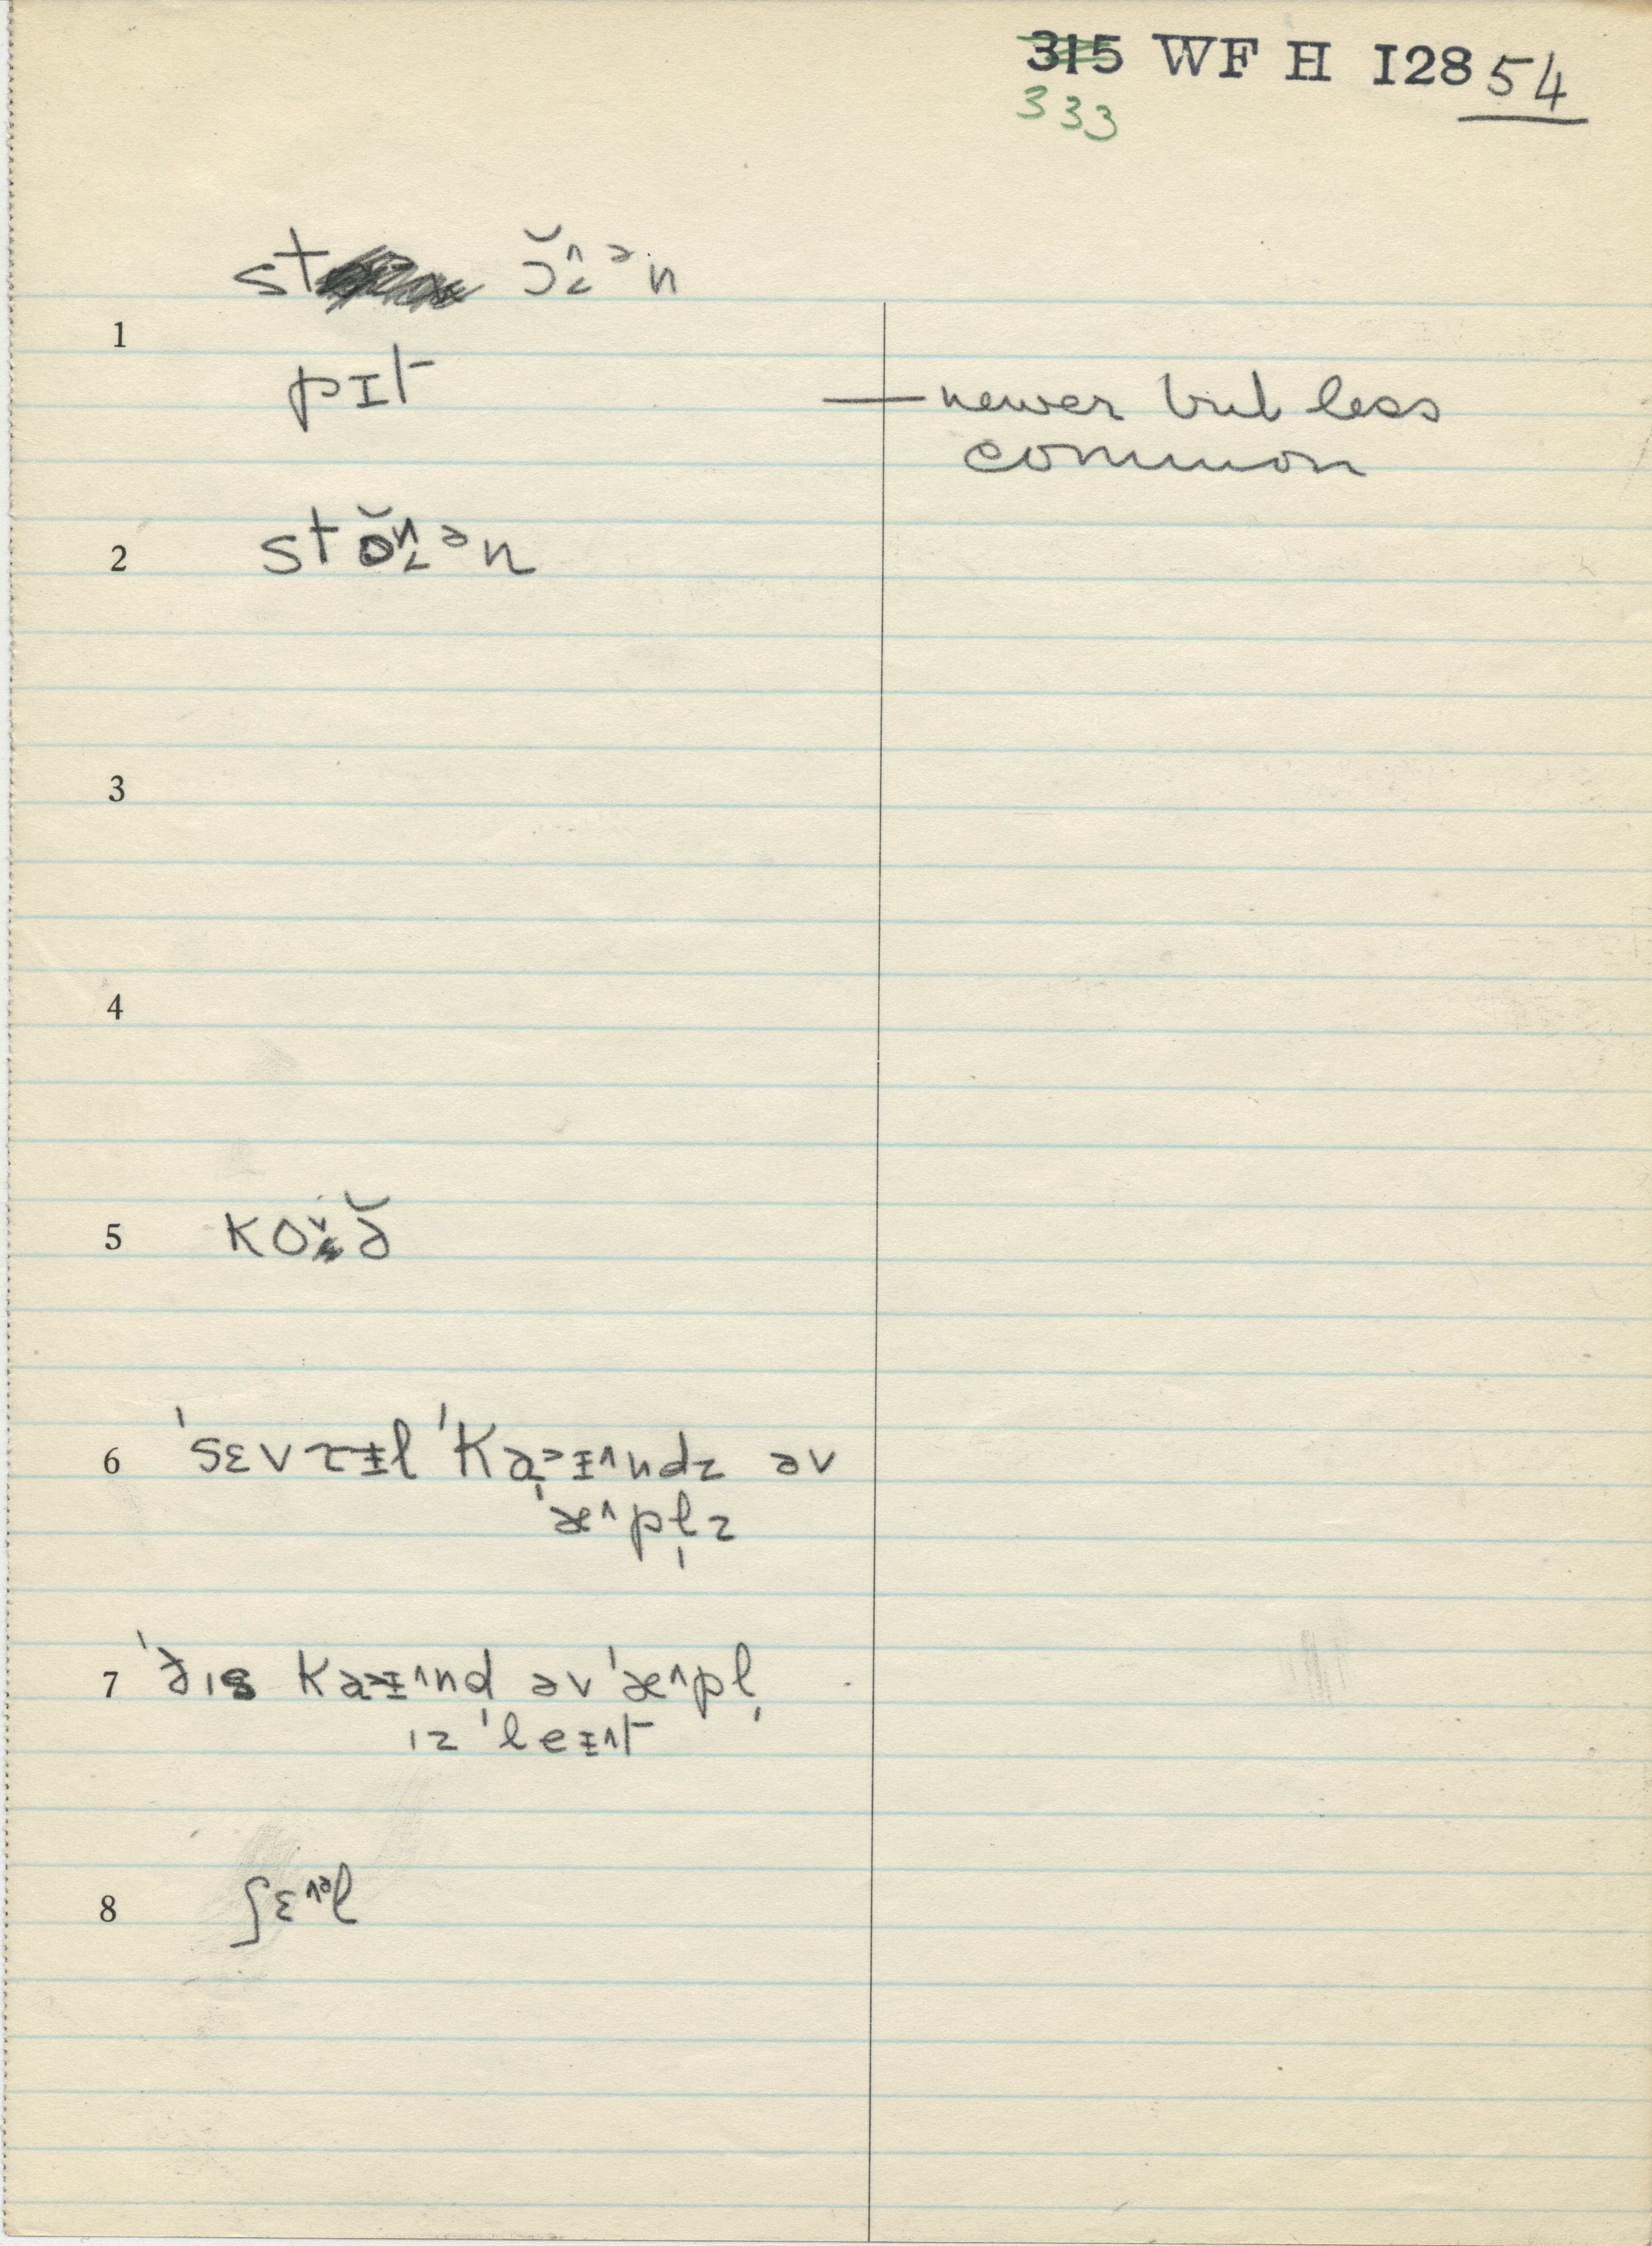 315 WF H I28 54
333
st ɔ̆^˂ᵊn
1
pɪt — newer but less
common
2 stŏ^˂ᵊn
3
4
5 koˇə̆
6 ˈsɛvrɨl ˈkaᵊɨ^ndz əv
ˈæ^pl̩z
7 ˈðɪs kaᵊɨ^nd əv ˈæ^pl̩
ɪz ˈleɨ^t
8 ʃɛ^ᵊl